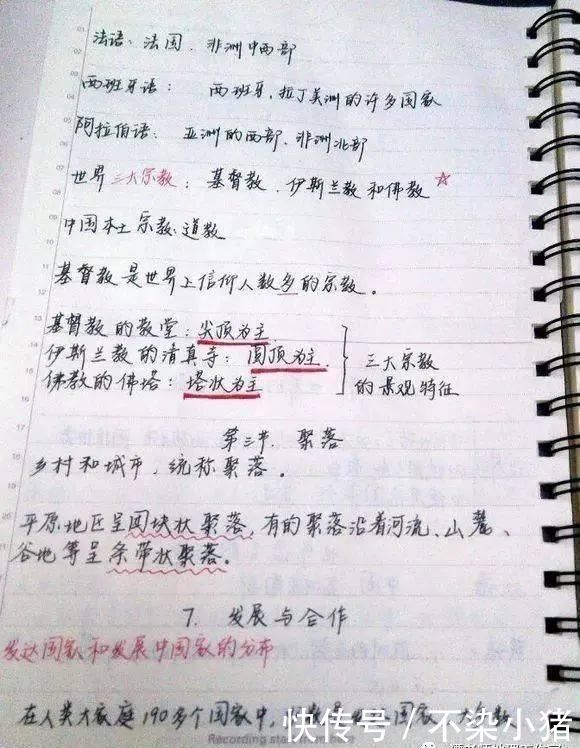 法语：法国．非洲中西部
西班牙语： 西班牙，拉丁美洲的许多国家
阿拉伯语：亚洲的西部、非洲北部
世界三大宗教：基督教、伊斯兰教和佛教 ☆
中国本土宗教：道教
基督教是世界上信仰人数多的宗教。
基督教的教堂：尖顶为主
伊斯兰教的清真寺：圆顶为主
佛教的佛塔：塔状为主
三大宗教
的景观特征
第三节 聚落
乡村和城市，统称聚落。
平原地区呈团块状聚落，有的聚落沿着河流、山麓、
谷地等呈条带状聚落。
7. 发展与合作
发达国家和发展中国家的分布
在人类大家庭190多个国家中，
快传号／不染小猪